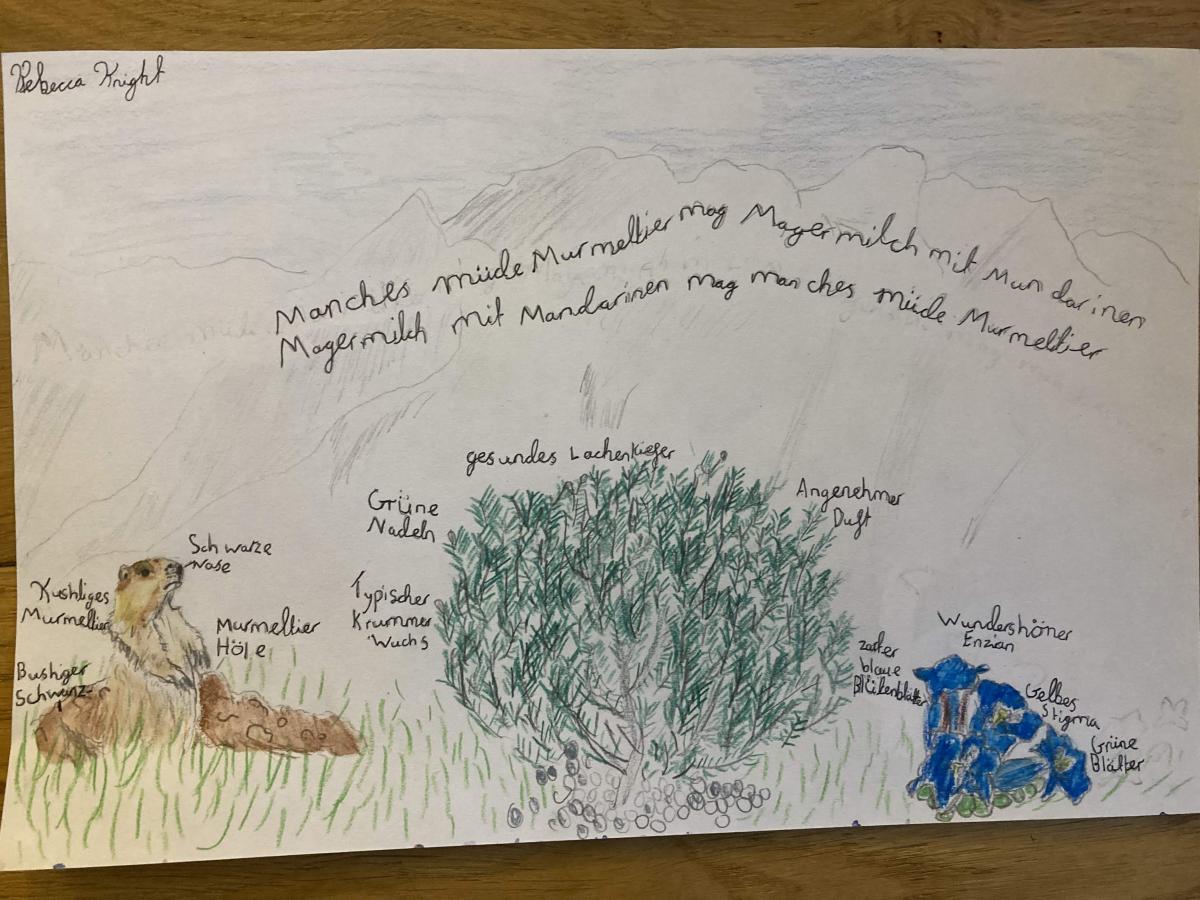 Rebecca Knight
Manches müde Murmeltier mag Magermilch mit Mundarinen
Magermilch mit Mandarinen mag manches müde Murmeltier
gesundes Lachenkiefer
Grüne
Nadeln
Angenehmer
Duft
Typischer
Krummer
Wuchs
Schwarze
Nase
Kushliges
Murmeltier
Murmeltier
Höle
Bushiger
Schwanz
Wundershöner
Enzian
zarter
blaue
Blütenblätter
Gelbes
Stigma
Grüne
Blätter